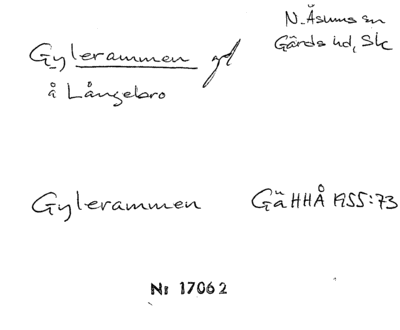 N. Åsums sn
Gärds hd, Sk
Gylerammen
å Långebro
Gylerammen GäHHÅ 1955:73
Nr 17062